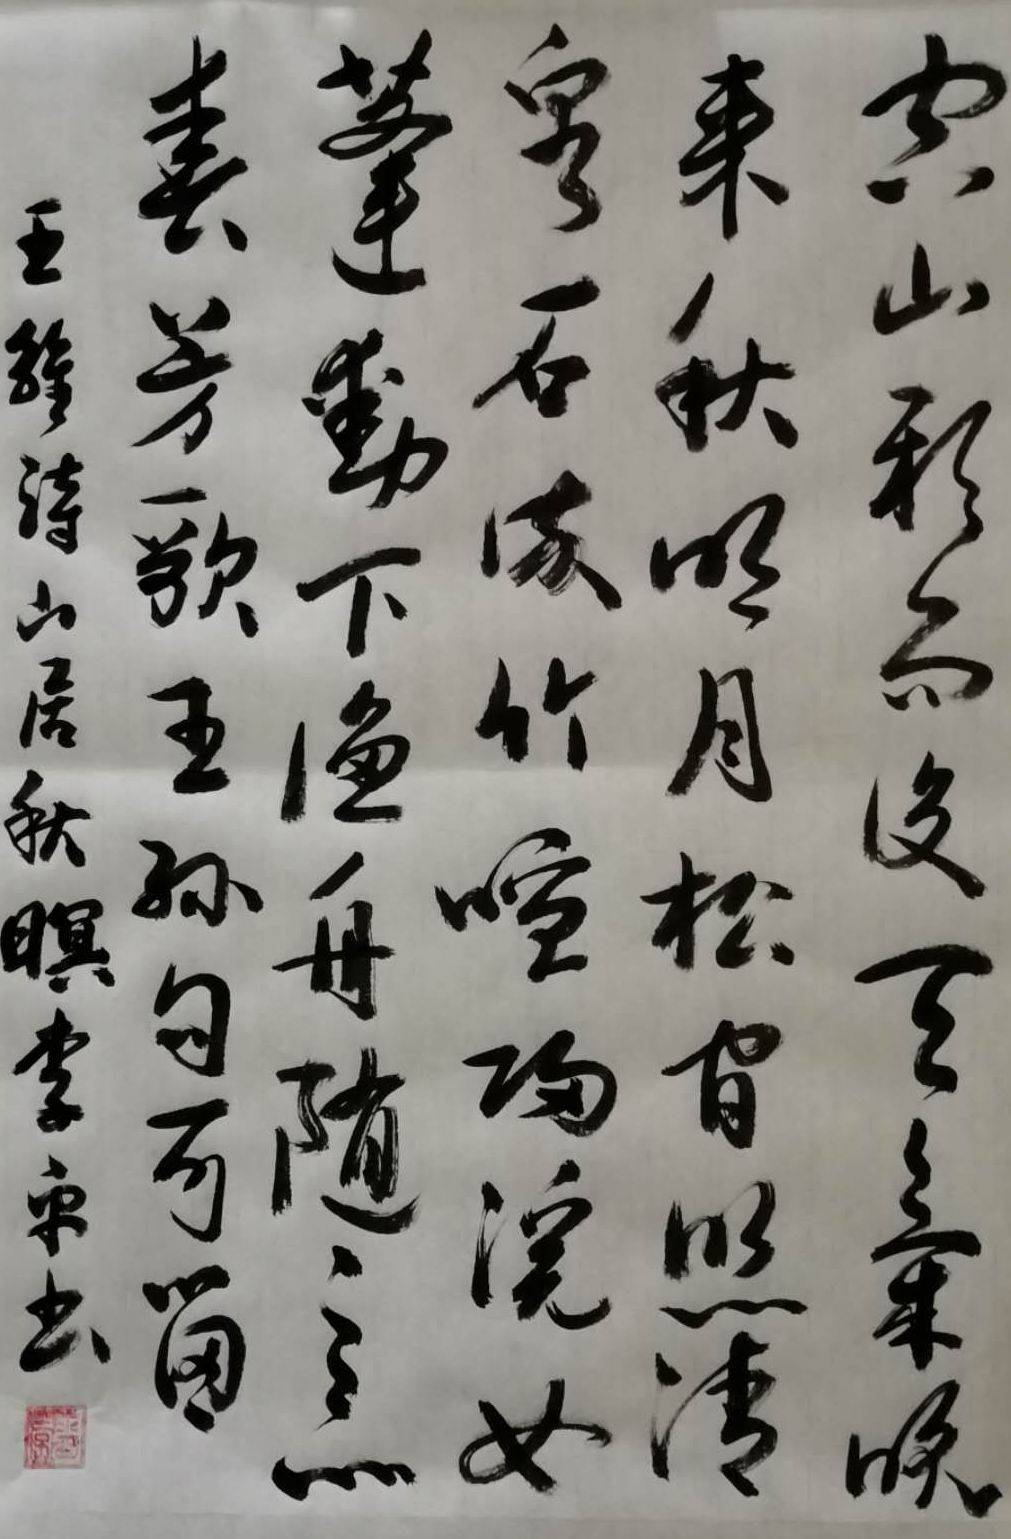 空山新雨後天氣晚
來秋明月松間照清
泉石流竹喧歸浣女
蓮動下漁舟隨意
春芳歇王孫自可留
王維詩山居秋暝李书